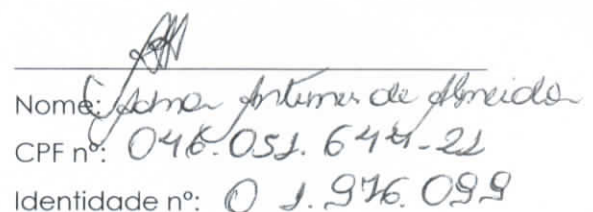 Nome: Antunes de Almeida
CPF nº: 046.051.644-21
Identidade nº: 01.976.099